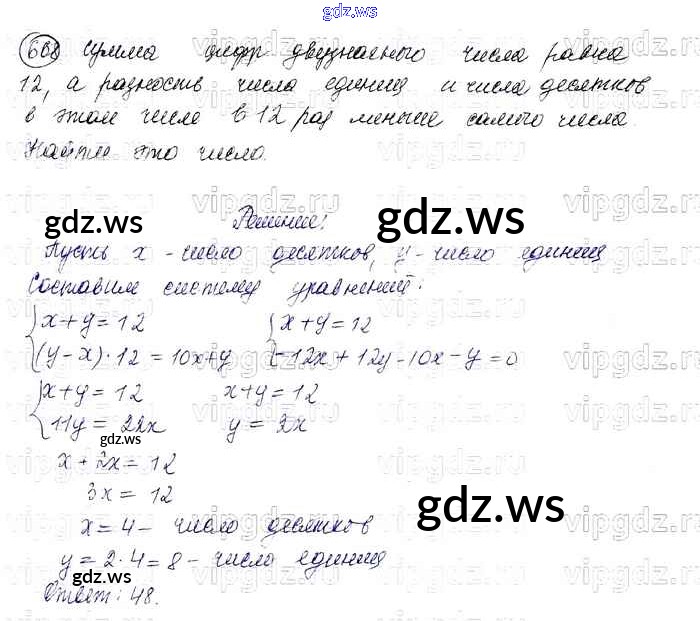 gdz.ws
668 Сумма цифр двузначного числа равна
12, а разность числа единиц и числа десятков
в этом числе в 12 раз меньше самого числа.
Найти это число.
Решение:
gdz.ws gdz.ws
Пусть x - число десятков, y - число единиц
Составим систему уравнений:
{x+y=12 {x+y=12
(y-x)·12=10x+y -12x+12y-10x-y=0
{x+y=12 x+y=12
11y=22x y=2x
gdz.ws
x+2x=12
3x=12
gdz.ws
x=4 - число десятков
y=2·4=8 - число единиц
gdz.ws
Ответ: 48.